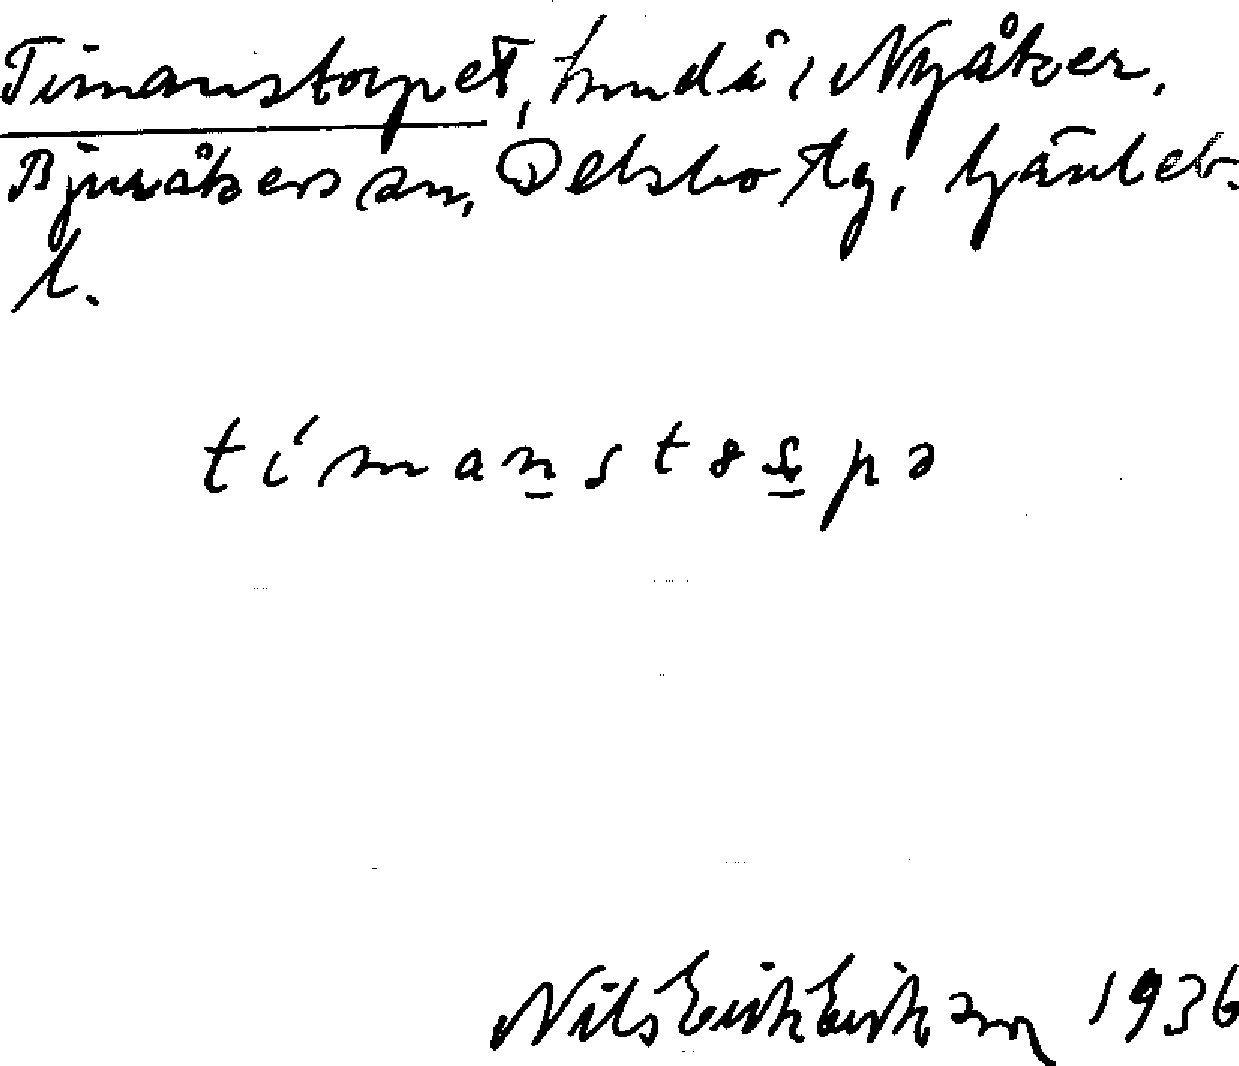 Timanstorpet, hmd å i Nyåker,
Bjuråkers sn, Delsbo tg, Gävleb.
l.
tímanstɞʂpə
Nils Erik Eriksson 1936